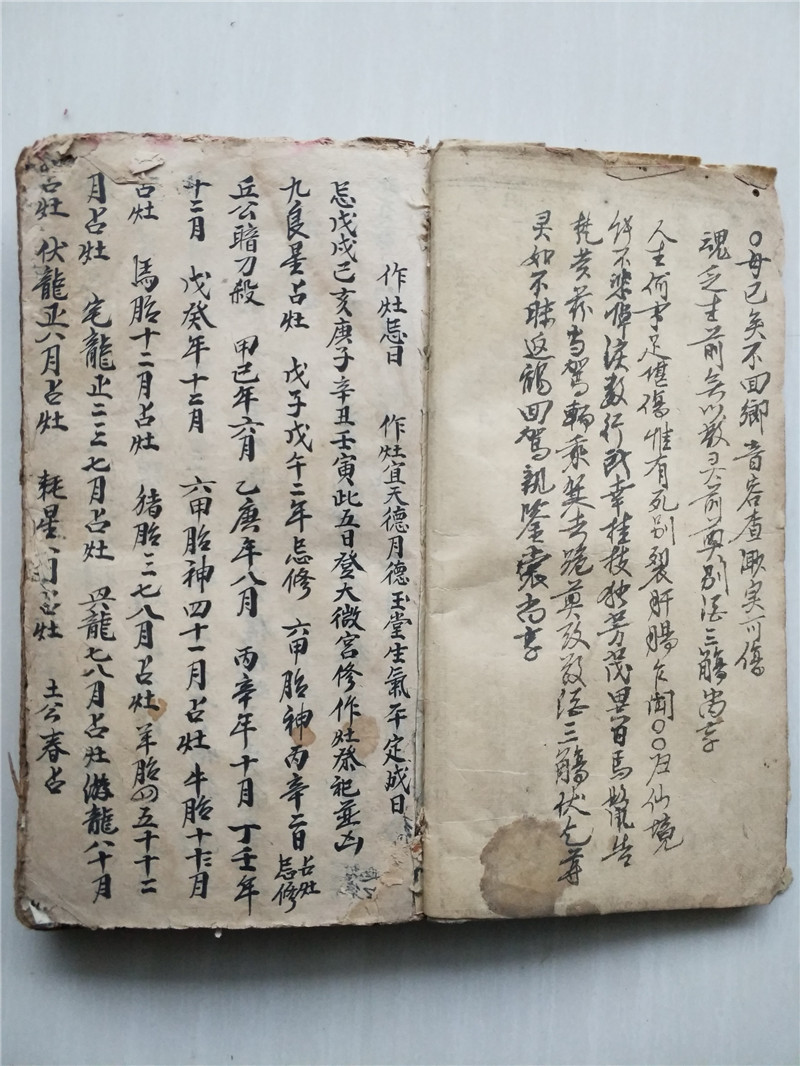 〇母已矣不回鄉音容查遡实可傷
魂乏生前前奠別酒三觴尚享
人生何事足堪傷惟有死別裂肝腸乍聞〇〇归仙境
不悲淚数行幸桂枝独芳茂異百馬鬣告
駕輀乘去跪奠致酒三觴伏乞尊
灵如不昧返鶴回驾親鉴裳尚享
作灶忌日 作灶宜天德月德玉堂生氣平定成日
忌戊戌己亥庚子辛丑壬寅此五日登大微宮修作灶祭祀並凶
九良星占灶 戊子戊午二年忌修 六甲胎神丙辛二日占灶忌修
丘公暗刀殺 甲己年六月 乙庚年八月 丙辛年十月 丁壬年
十二月 戊癸年十二月 六甲胎神四十一月占灶 牛胎十十二月
占灶 馬胎十二月占灶 猪胎三七八月占灶 羊胎四五十十二
月占灶 宅龍正二三七月占灶 龍七八月占灶 游龍八十月
占灶 伏龍正六月占灶 耗星月占灶 土公春占